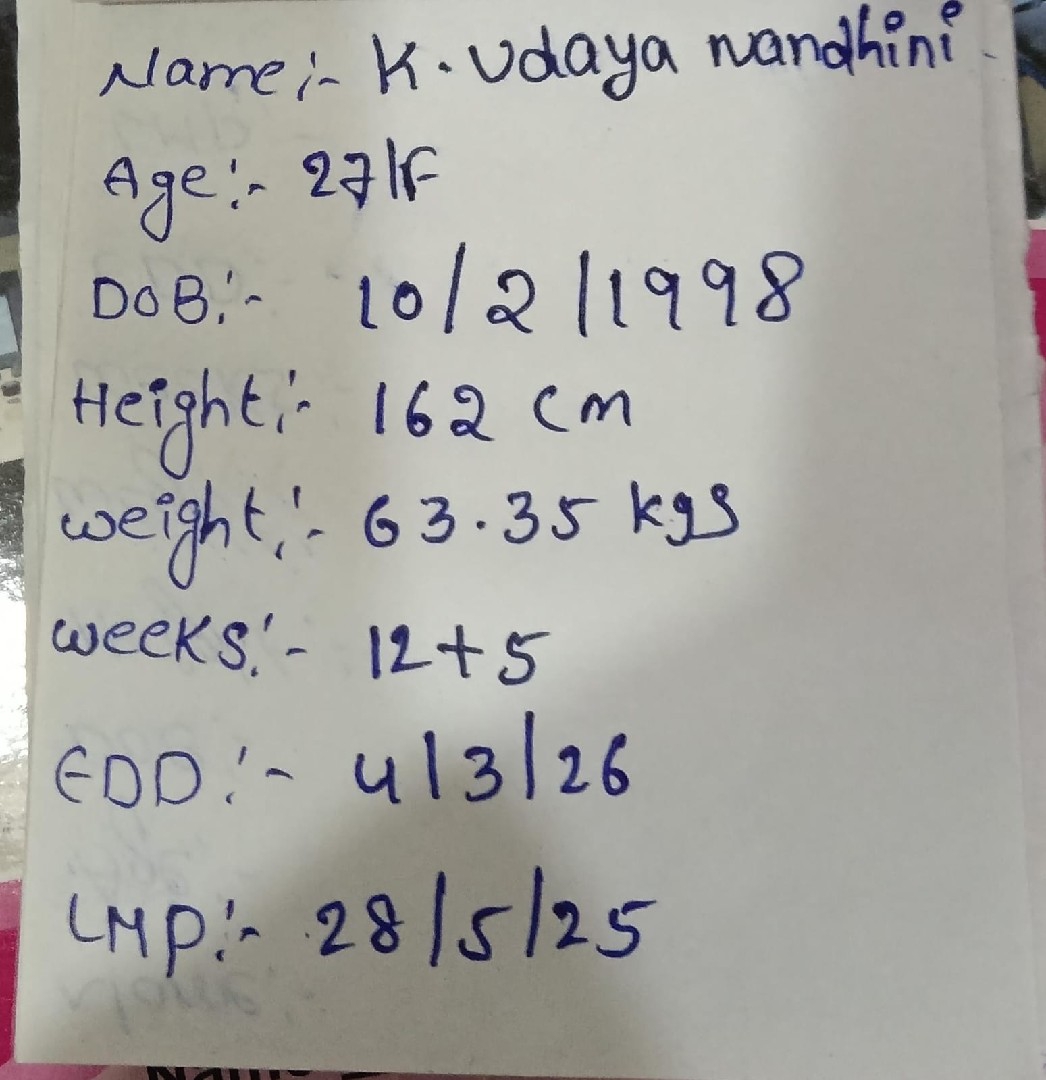 Name:- K. Udaya nandhini
Age:- 27/F
DOB:- 10/2/1998
Height:- 162 cm
weight:- 63.35 kgs
weeks:- 12+5
EDD:- 4/3/26
LMP:- 28/5/25